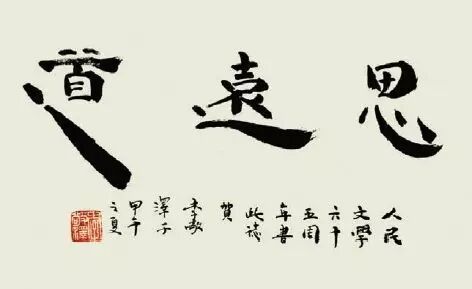 思遠道
人民
文學
六十
五周
年書
此誌
賀
李敬
澤于
甲午
之夏